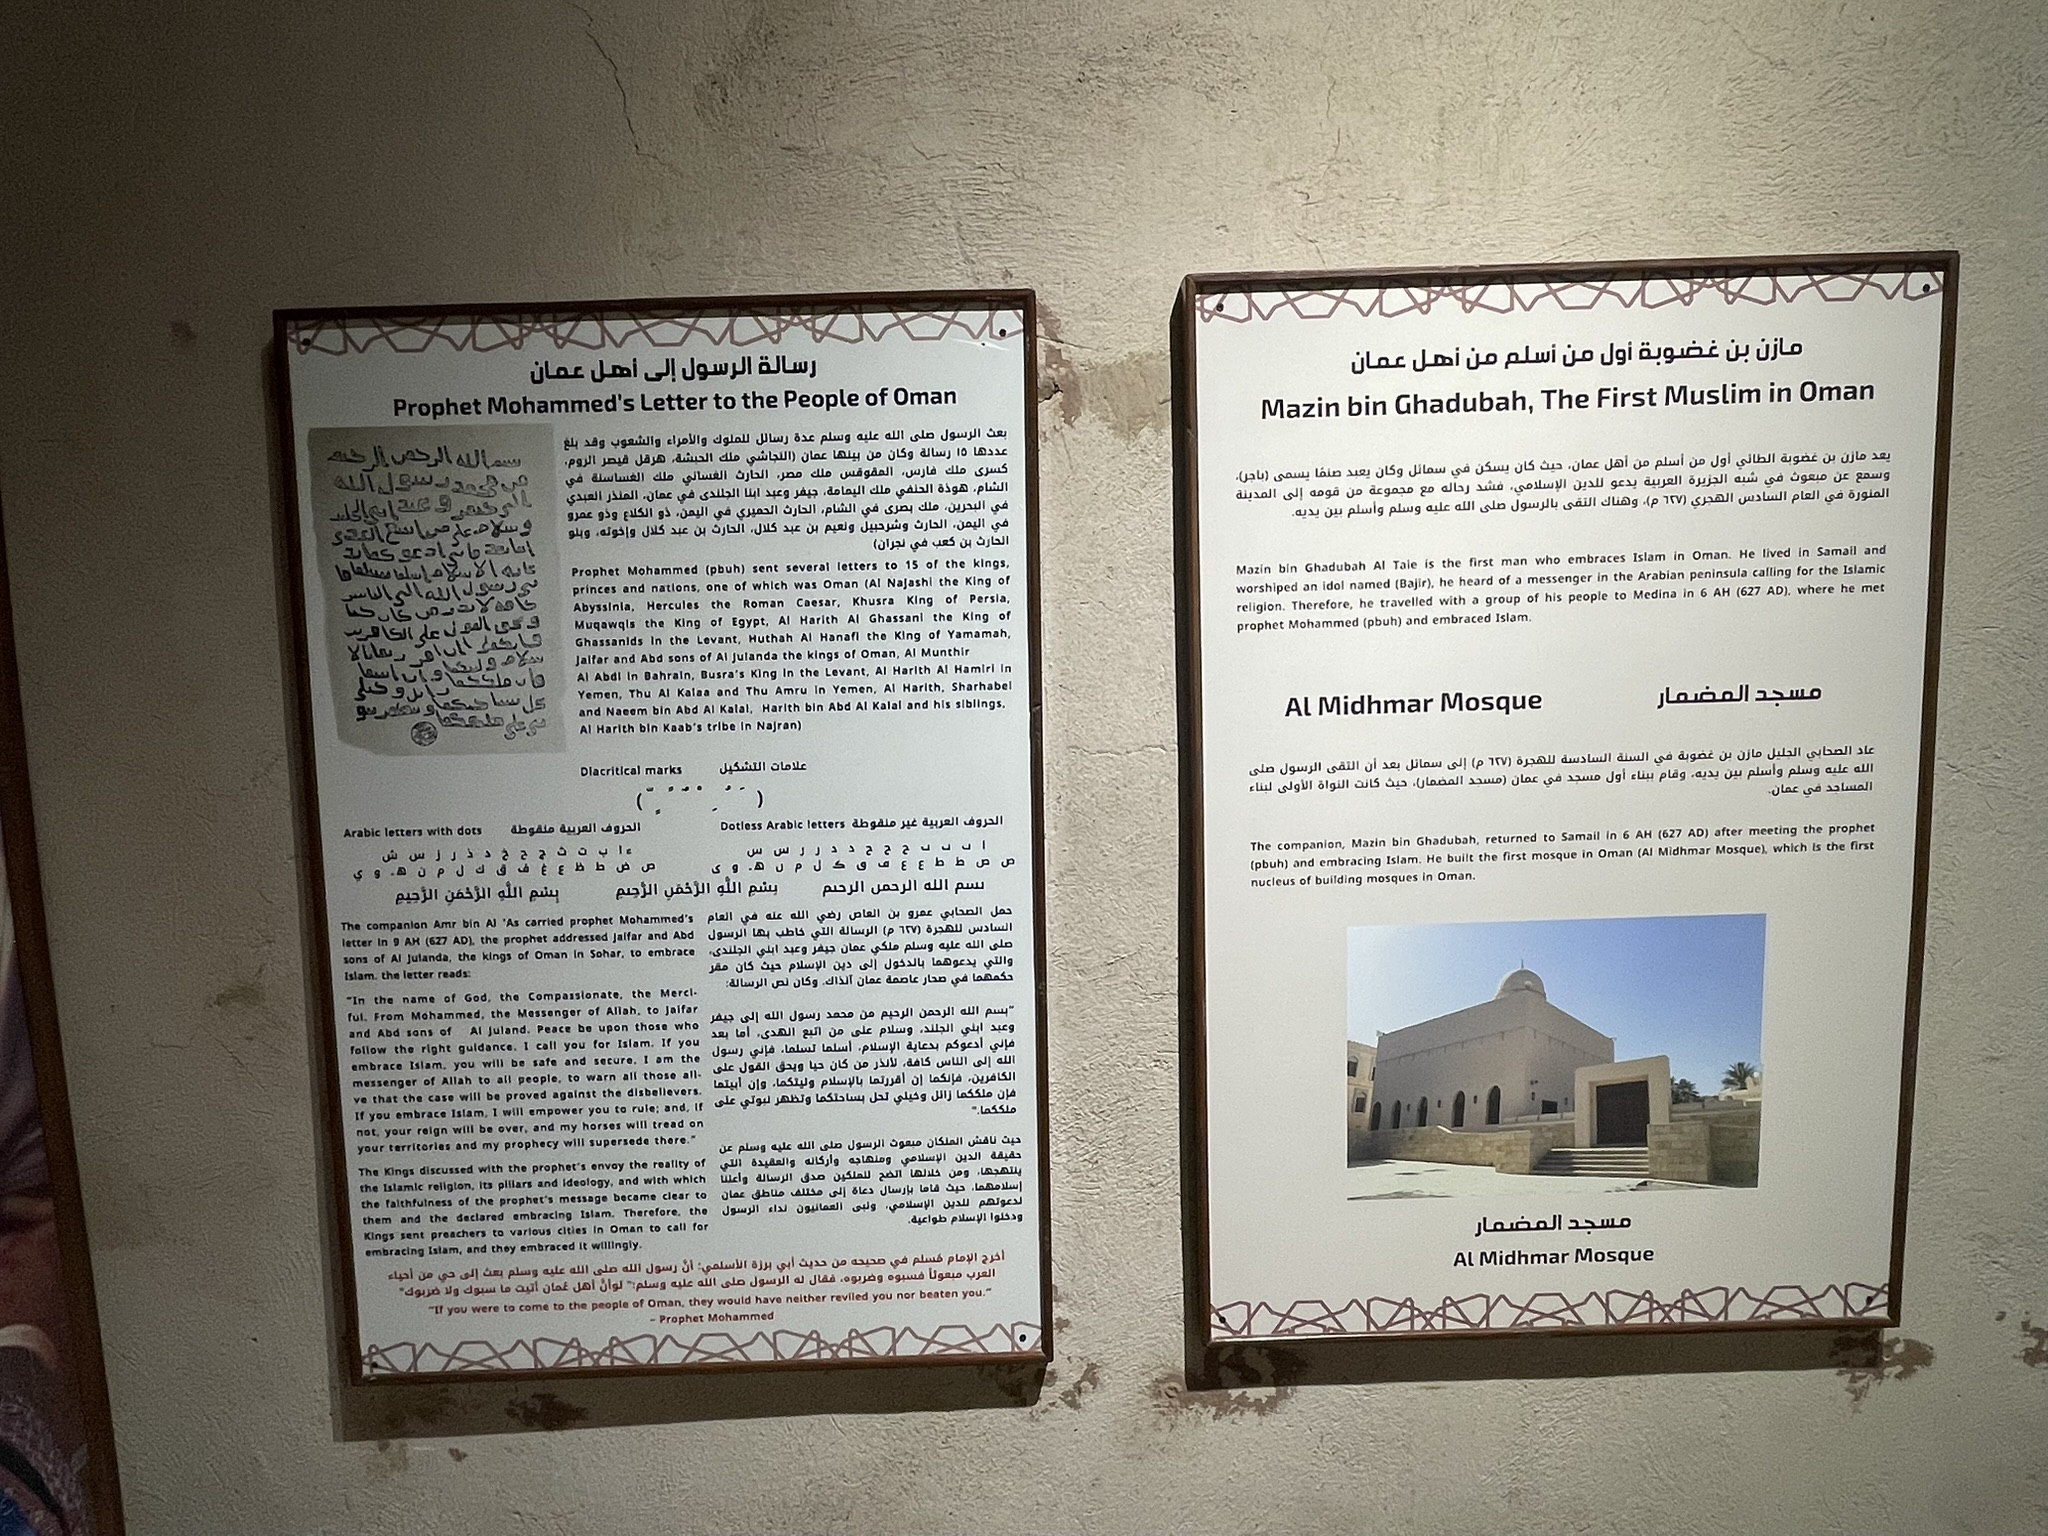 رسالة الرسول إلى أهل عمان
Prophet Mohammed's Letter to the People of Oman
بعث الرسول صلى الله عليه وسلم عدة رسائل للملوك والأمراء والشعوب وقد بلغ
عددها ١٥ رسالة وكان من بينها عمان (النجاشي ملك الحبشة، هرقل قيصر الروم،
كسرى ملك فارس، المقوقس ملك مصر، الحارث الغساني ملك الغساسنة في
الشام، هوذة الحنفي ملك اليمامة، جيفر وعبد ابنا الجلندى في عمان، المنذر العبدي
في البحرين، ملك بصرى في الشام، الحارث الحميري في اليمن، ذو الكلاع وذو عمرو
في اليمن، الحارث وشرحبيل ونعيم بن عبد كلال، الحارث بن عبد كلال وإخوته، وبنو
الحارث بن كعب في نجران)
Prophet Mohammed (pbuh) sent several letters to 15 of the kings,
princes and nations, one of which was Oman (Al Najashi the King of
Abyssinia, Hercules the Roman Caesar, Khusra King of Persia,
Muqawqis the King of Egypt, Al Harith Al Ghassani the King of
Ghassanids in the Levant, Huthah Al Hanafi the King of Yamamah,
Jaifar and Abd sons of Al Julanda the kings of Oman, Al Munthir
Al Abdi in Bahrain, Busra's King in the Levant, Al Harith Al Hamiri in
Yemen, Thu Al Kalaa and Thu Amru in Yemen, Al Harith, Sharhabel
and Naeem bin Abd Al Kalal, Harith bin Abd Al Kalal and his siblings,
Al Harith bin Kaab's tribe in Najran)
Diacritical marks علامات التشكيل
Arabic letters with dots الحروف العربية منقوطة
ء ا ب ت ث ج ح خ د ذ ر ز س ش
ص ض ط ظ ع غ ف ق ك ل م ن هـ و ي
Dotless Arabic letters الحروف العربية غير منقوطة
بسم الله الرحمن الرحيم بِسْمِ اللَّهِ الرَّحْمَنِ الرَّحِيمِ بِسْمِ اللَّهِ الرَّحْمَنِ الرَّحِيمِ
The companion Amr bin Al 'As carried prophet Mohammed's
letter in 9 AH (627 AD), the prophet addressed Jaifar and Abd
sons of Al Julanda, the kings of Oman in Sohar, to embrace
Islam. the letter reads:
"In the name of God, the Compassionate, the Merci-
ful. From Mohammed, the Messenger of Allah, to Jaifar
and Abd sons of Al Juland. Peace be upon those who
follow the right guidance. I call you for Islam. If you
embrace Islam, you will be safe and secure. I am the
messenger of Allah to all people, to warn all those ali-
ve that the case will be proved against the disbelievers.
If you embrace Islam, I will empower you to rule; and, if
not, your reign will be over, and my horses will tread on
your territories and my prophecy will supersede there."
The Kings discussed with the prophet's envoy the reality of
the Islamic religion, its pillars and ideology, and with which
the faithfulness of the prophet's message became clear to
them and the declared embracing Islam. Therefore, the
Kings sent preachers to various cities in Oman to call for
embracing Islam, and they embraced it willingly.
حمل الصحابي عمرو بن العاص رضي الله عنه في العام
السادس للهجرة (٦٢٧ م) الرسالة التي خاطب بها الرسول
صلى الله عليه وسلم ملكي عمان جيفر وعبد ابني الجلندى،
والتي يدعوهما بالدخول إلى دين الإسلام حيث كان مقر
حكمهما في صحار عاصمة عمان آنذاك. وكان نص الرسالة:
"بسم الله الرحمن الرحيم من محمد رسول الله إلى جيفر
وعبد ابني الجلند، وسلام على من اتبع الهدى، أما بعد
فإني أدعوكم بدعاية الإسلام، أسلما تسلما، فإني رسول
الله إلى الناس كافة، لأنذر من كان حيا ويحق القول على
الكافرين، فإنكما إن أقررتما بالإسلام وليتكما، وإن أبيتما
فإن ملككما زائل وخيلي تحل بساحتكما وتظهر نبوتي على
ملككما."
حيث ناقش الملكان مبعوث الرسول صلى الله عليه وسلم عن
حقيقة الدين الإسلامي ومنهاجه وأركانه والعقيدة التي
ينتهجها، ومن خلالها اتضح للملكين صدق الرسالة وأعلنا
إسلامهما، حيث قاما بإرسال دعاة إلى مختلف مناطق عمان
لدعوتهم للدين الإسلامي، ولبى العمانيون نداء الرسول
ودخلوا الإسلام طواعية.
أخرج الإمام مُسلم في صحيحه من حديث أبي برزة الأسلمي: أنَّ رسول الله صلى الله عليه وسلم بعث إلى حي من أحياء
العرب مبعوثاً فسبوه وضربوه، فقال له الرسول صلى الله عليه وسلم:" لوأنَّ أهل عُمان أتيت ما سبوك ولا ضربوك"
"If you were to come to the people of Oman, they would have neither reviled you nor beaten you."
– Prophet Mohammed
مازن بن غضوبة أول من أسلم من أهل عمان
Mazin bin Ghadubah, The First Muslim in Oman
يعد مازن بن غضوبة الطائي أول من أسلم من أهل عمان، حيث كان يسكن في سمائل وكان يعبد صنمًا يسمى (باجر)،
وسمع عن مبعوث في شبه الجزيرة العربية يدعو للدين الإسلامي، فشد رحاله مع مجموعة من قومه إلى المدينة
المنورة في العام السادس الهجري (٦٢٧ م)، وهناك التقى بالرسول صلى الله عليه وسلم وأسلم بين يديه.
Mazin bin Ghadubah Al Taie is the first man who embraces Islam in Oman. He lived in Samail and
worshiped an idol named (Bajir), he heard of a messenger in the Arabian peninsula calling for the Islamic
religion. Therefore, he travelled with a group of his people to Medina in 6 AH (627 AD), where he met
prophet Mohammed (pbuh) and embraced Islam.
Al Midhmar Mosque مسجد المضمار
عاد الصحابي الجليل مازن بن غضوبة في السنة السادسة للهجرة (٦٢٧ م) إلى سمائل بعد أن التقى الرسول صلى
الله عليه وسلم وأسلم بين يديه، وقام ببناء أول مسجد في عمان (مسجد المضمار)، حيث كانت النواة الأولى لبناء
المساجد في عمان.
The companion, Mazin bin Ghadubah, returned to Samail in 6 AH (627 AD) after meeting the prophet
(pbuh) and embracing Islam. He built the first mosque in Oman (Al Midhmar Mosque), which is the first
nucleus of building mosques in Oman.
مسجد المضمار
Al Midhmar Mosque